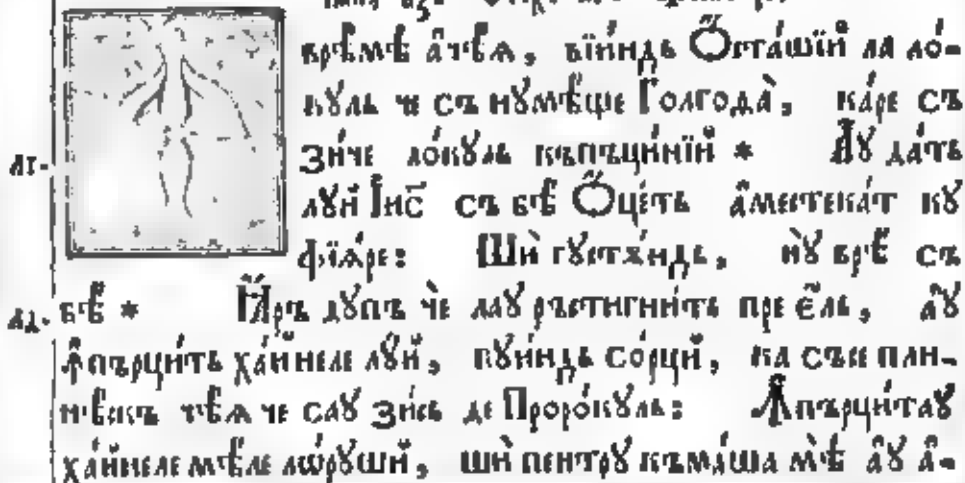 врѣмѣ а҆чѣѧ, вїи́ндь Ѻ҆ста́шїй ла ло́-
кꙋль че съ нꙋмѣ́ще Голгода̀, ка́ре съ
зи́че ло́кꙋль къпъци́нїй * Аꙋ да́ть
лꙋй І҆ис҃ съ бѣ́ Ѻ҆це́ть а҆местека́т кꙋ
фїа́ре: Шѝ гꙋстѫ́ндь, нꙋ врѣ̀ съ
бѣ́ * І҆́аръ дꙋпъ чѐ лаꙋ ръстигни́ть пре є҆ль, аꙋ
ꙟпърци́ть ха́йнеле лꙋй, пꙋи́ндь со́рци, ка съсе плн-
нѣ́скъ чѣ́ѧ че саꙋ зи́сь де Проро́кꙋль: Ꙟпърци́таꙋ
ха́йнеле мѣ́ле лѡ́рꙋши, шѝ пентрꙋ къмаша мѣ̀ аꙋ а҆-